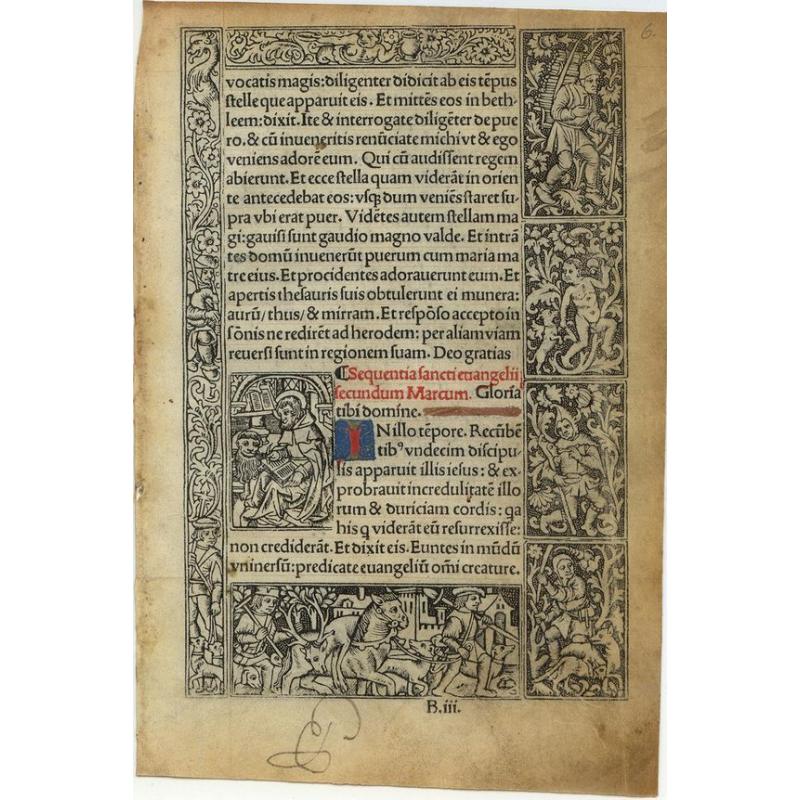 6.
vocatis magis:diligenter didicit ab eis tēpus
stelle que apparuit eis. Et mittēs eos in beth-
leem:dixit. Ite & interrogate diligēter de pue
ro. & cū inueneritis renūciate michi vt & ego
veniens adorē eum. Qui cū audissent regem
abierunt. Et ecce stella quam viderāt in orien
te antecedebat eos: vsqꝫ dum veniēs staret su-
pra vbi erat puer. Vidētes autem stellam ma
gi:gauisi sunt gaudio magno valde. Et intrā
tes domū inuenerūt puerum cum maria ma
tre eius. Et procidentes adorauerunt eum. Et
apertis thesauris suis obtulerunt ei munera:
aurū/thus/& mirram. Et respōso accepto in
sōnis ne redirēt ad herodem: per aliam viam
reuersi sunt in regionem suam. Deo gratias
¶Sequentia sancti euangelii
secundum Marcum. Gloria
tibi domine.
IN illo tēpore. Recūbē
tibꝰ vndecim discipu
lis apparuit illis iesus: & ex-
probrauit incredulitatē illo
rum & duriciam cordis: qa
his q viderāt eū resurrexisse:
non crediderāt. Et dixit eis. Euntes in mūdū
vniuersū: predicate euangeliū omi creature.
B.iii.